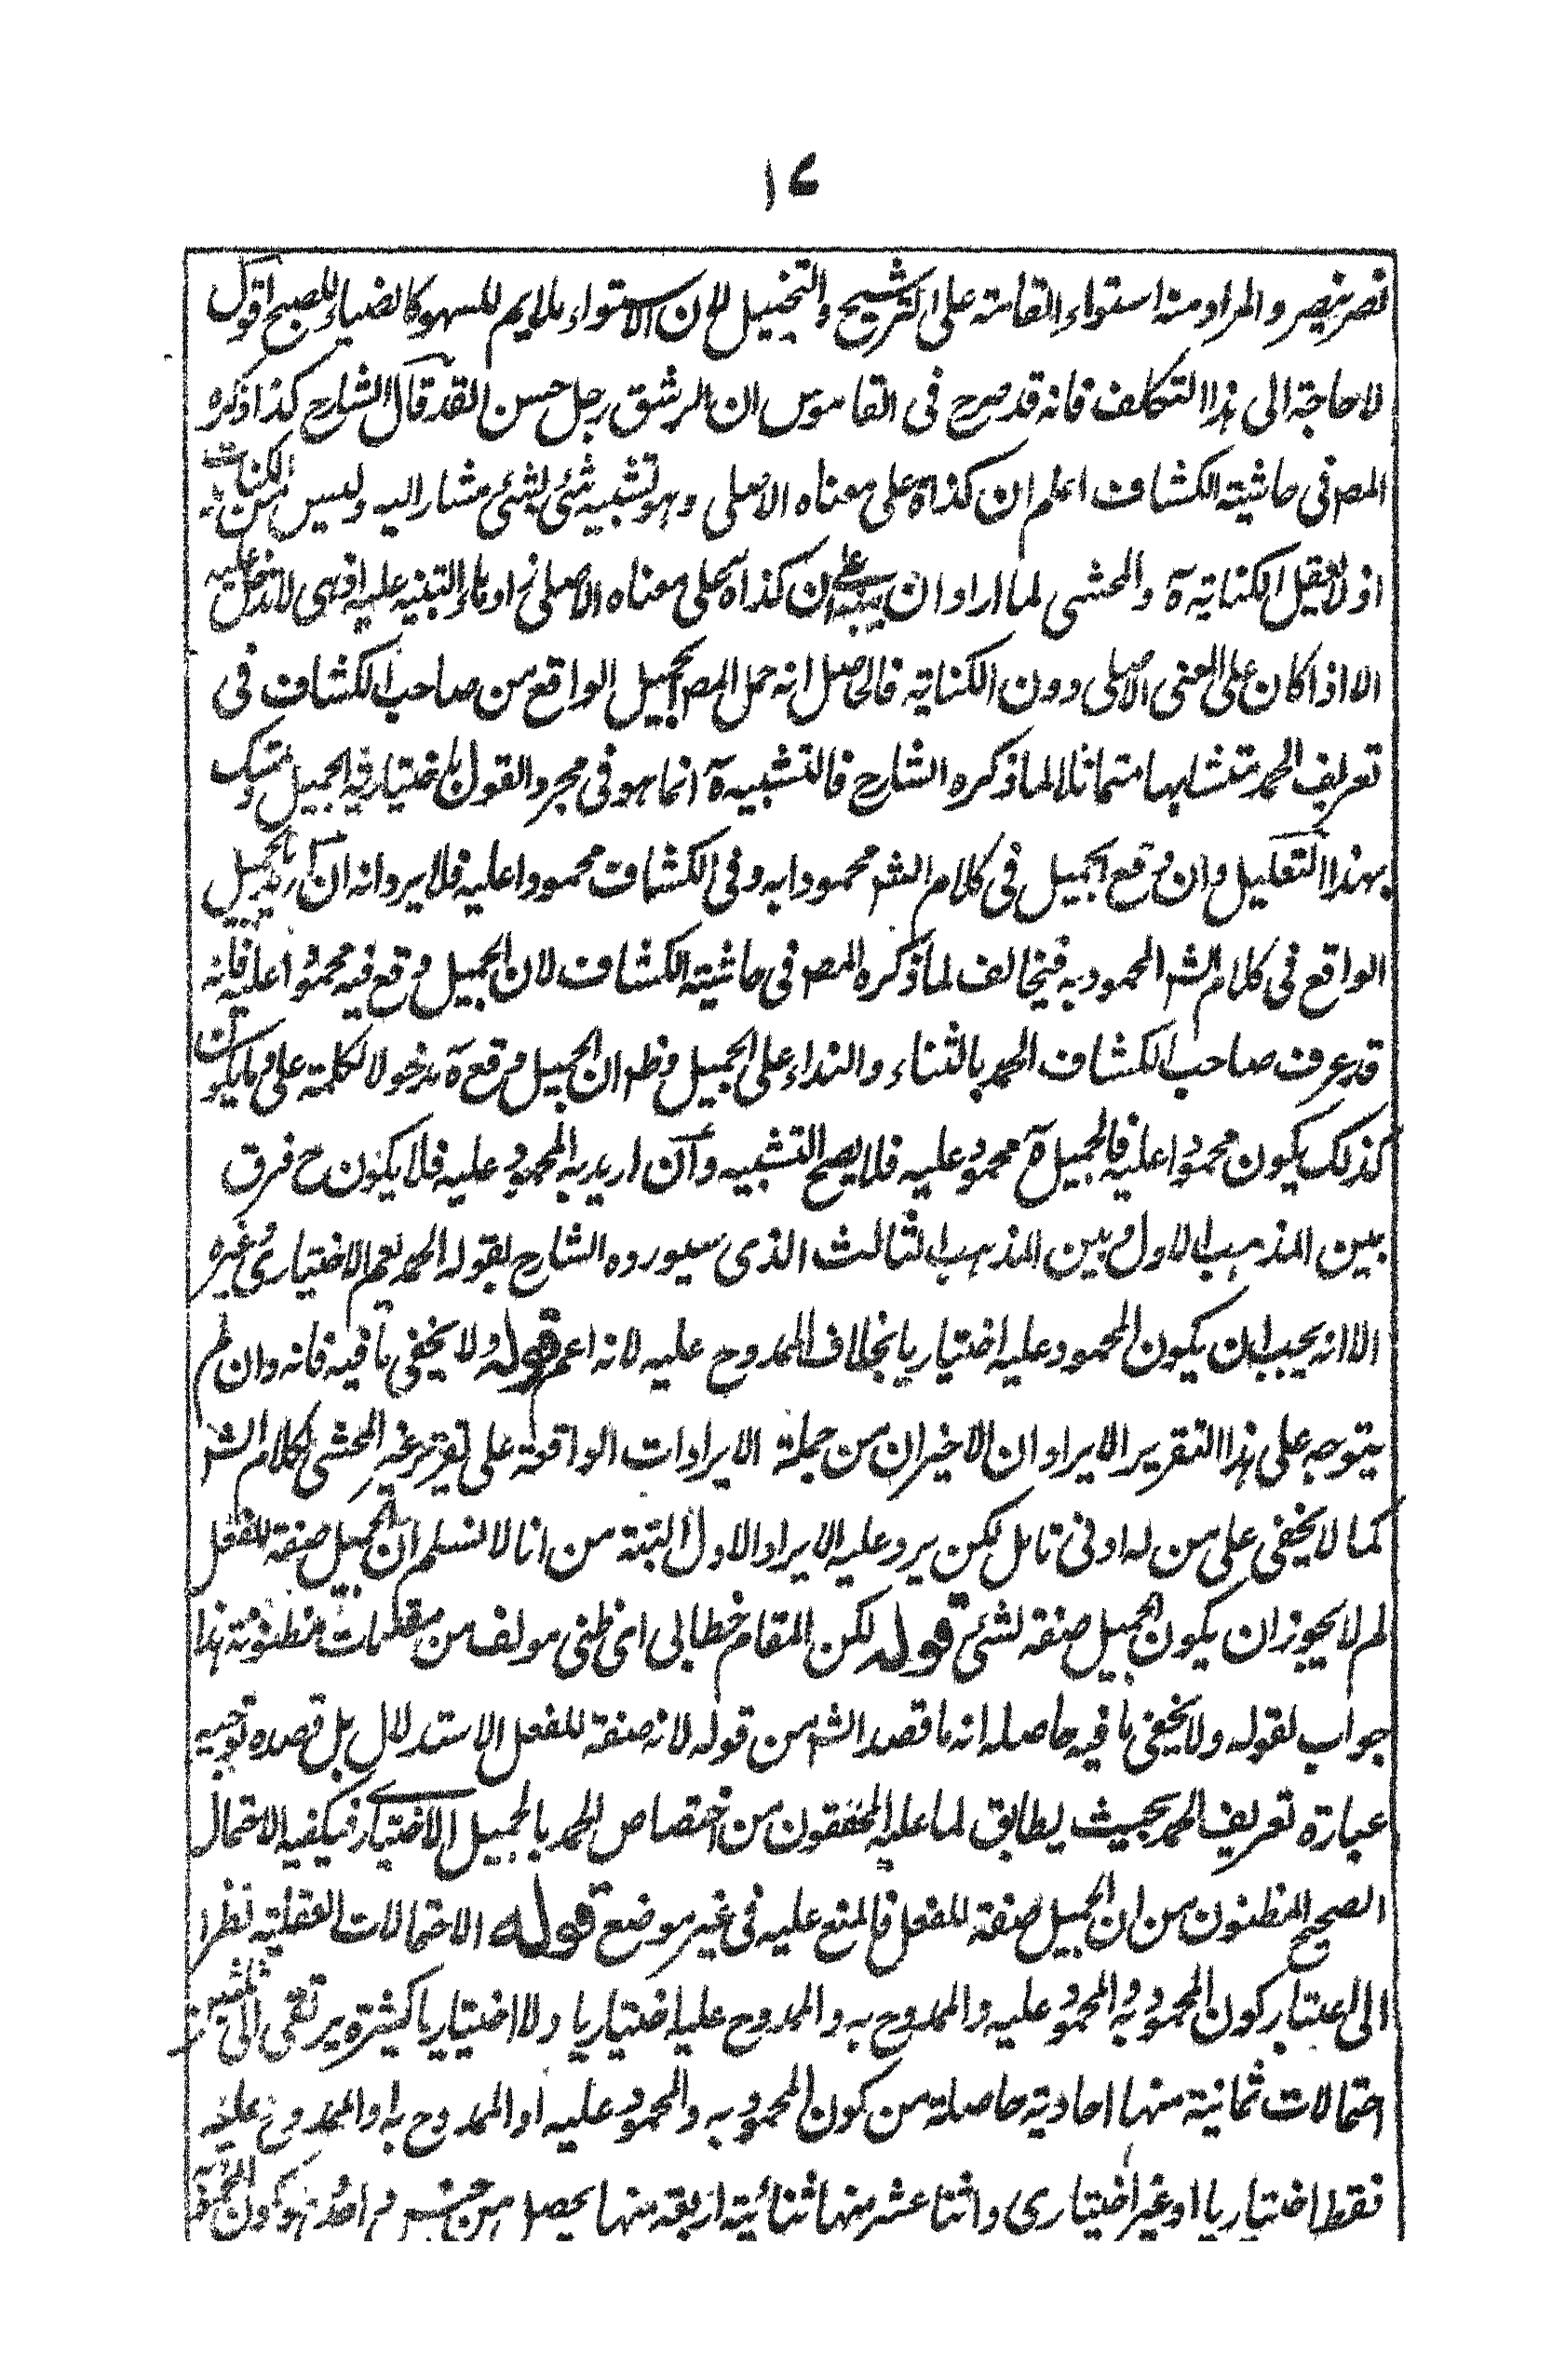 ١٤
نصر ينصر والمراد منه استواء القامة على الترشيح والتخييل لان الاستواء ملايم للسهو كالضياء للصبح اقول
لا حاجة الى هذا التكلف فانه قد صرح فى القاموس ان الرشق رجل حسن القد قال الشارح كذا ذكره
المص فى حاشية الكشاف اعلم ان كذاة على معناه الاصلى وهو تشبيه شئ بشئ مشار اليه وليس من الكنايات
اذ لا تعقل الكناية ة والمحشى لما اراد ان ينبه على ان كذاة على معناه الاصلى اوماء التنبيه عليه اذ هى لا تدخل عليه
الا اذا كان على المعنى الاصلى دون الكناية فالحاصل انه حمل المص الجميل الواقع من صاحب الكشاف فى
تعريف الحمد متشابها متماثلا لما ذكره الشارح فالتشبيه ة انما هو فى مجرد القول باختيارية الجميل وتمسك
بهذا التعليل وان وقع الجميل فى كلام الشر محمودا به وفى الكشاف محمودا عليه فلا يرد انه ان اريد بالجميل
الواقع فى كلام الشر المحمود به فيخالف لما ذكره المص فى حاشية الكشاف لان الجميل وقع فيه محمودا عليه فانه
قد عرف صاحب الكشاف الحمد بالثناء والنداء على الجميل وظهر ان الجميل وقع ة مدخولا لكلمة على وما يكون
كذلك يكون محمودا عليه فالجميل ة محمود عليه فلا يصح التشبيه وان اريد به المحمود عليه فلا يكون ح فرق
بين المذهب الاول وبين المذهب الثالث الذى سيورده الشارح بقوله الحمد يعم الاختيارى وغيره
الا انه يجب ان يكون المحمود عليه اختياريا بخلاف الممدوح عليه لانه اعم قوله ولا يخفى ما فيه فانه وان لم
يتوجه على هذا التقرير الايرادان الاخيران من جملة الايرادات الواقعة على تقرير غير المحشى لكلام الشر
كما لا يخفى على من له ادنى تامل لكن يرد عليه الايراد الاول البتة من انا لا نسلم ان الجميل صفة للفعل
لم لا يجوز ان يكون الجميل صفة لشئ قوله لكن المقام خطابى اى ظنى مولف من مقدمات مظنونة هذا
جواب لقوله ولا يخفى ما فيه حاصله انه ما قصد الشر من قوله لانه صفة للفعل الاستدلال بل قصده توجيه
عبارة تعريف الحمد بحيث يطابق لما عليه المحققون من اختصاص الحمد بالجميل الاختيارى فيكفيه الاحتمال
الصحيح المظنون من ان الجميل صفة للفعل فالمنع عليه فى غير موضع قوله الاحتمالات العقلية نظرا
الى اعتبار كون المحمود به والمحمود عليه والممدوح به والممدوح عليه اختياريا ولا اختياريا كثيرة يرتقى الى
احتمالات ثمانية منها احادية حاصلة من كون المحمود به والمحمود عليه او الممدوح به او الممدوح عليه
فقط اختياريا او غير اختيارى واثنا عشر منها ثنائية اربعة منها يحصل من جنس واحد وهو كون